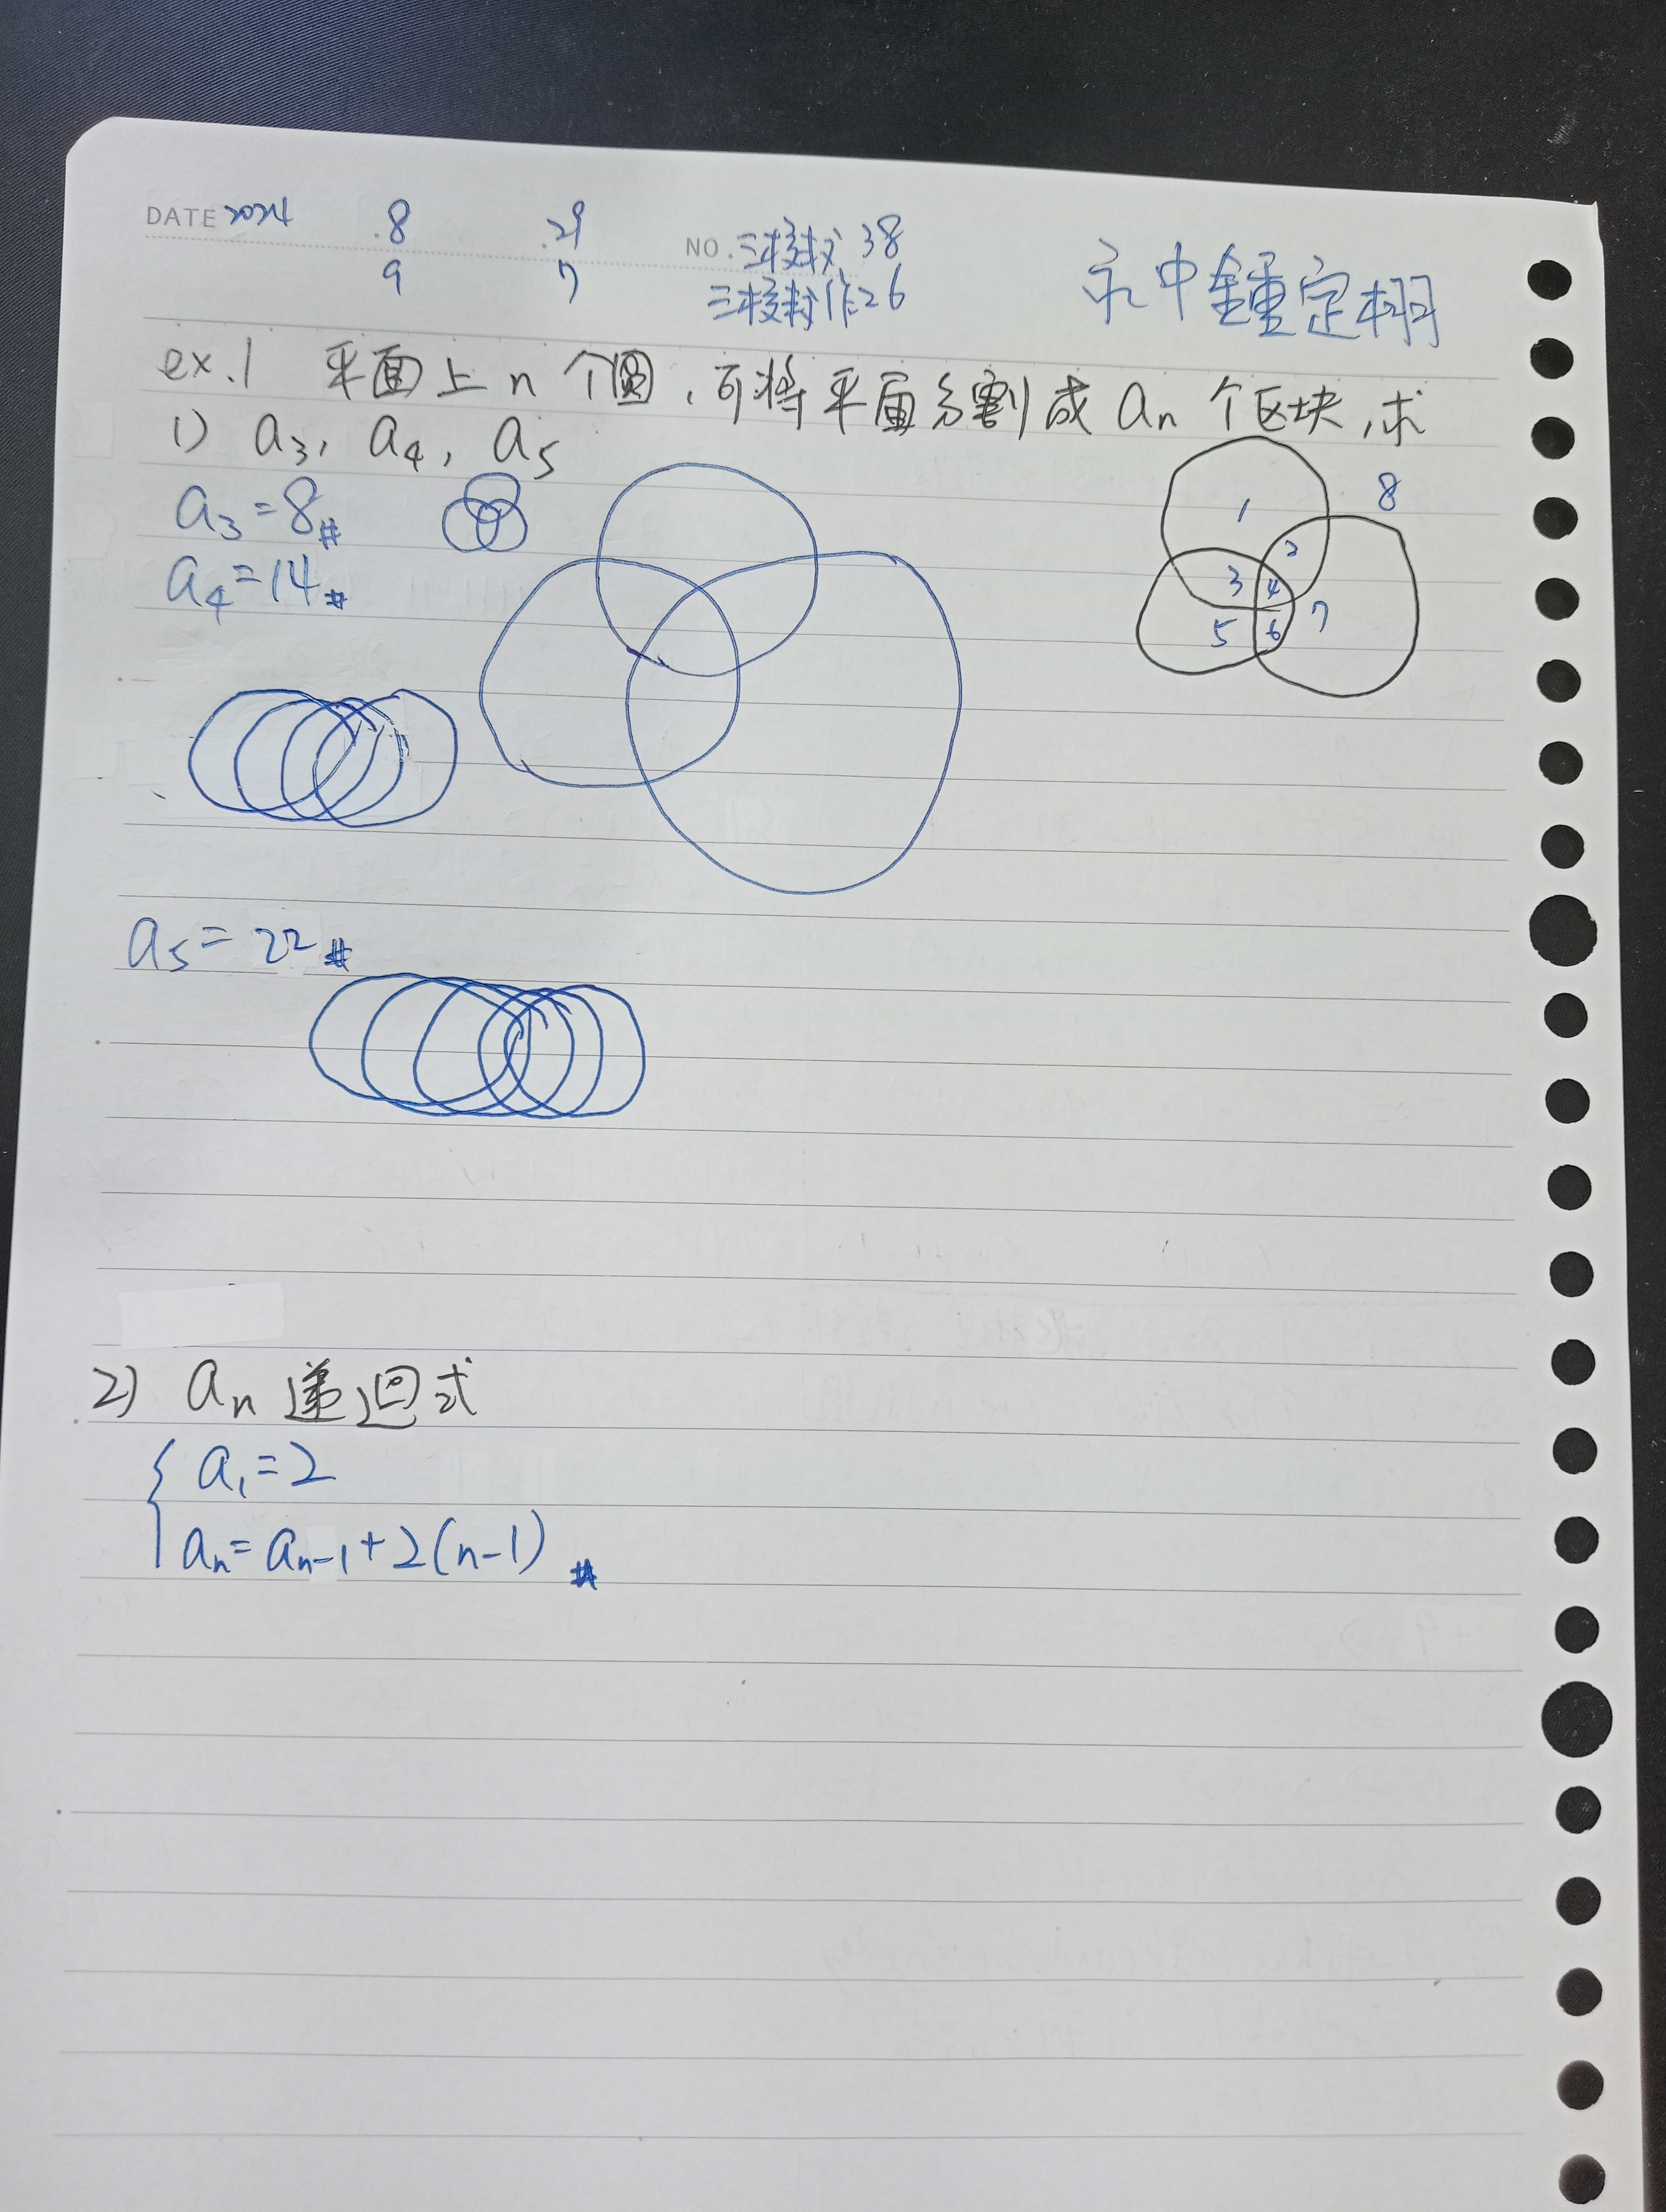 DATE 2024 .8 .29 NO. 三校扩 38
9 7 三校扩作26
永中鍾定栩
ex.1 平面上 n 个圆,可将平面分割成 an 个区块,求
1) a3, a4, a5
a3=8#
a4=14#
8
1
2
3 4
7
5 6
a5=22#
2) an 递迴式
{ a1=2
an=an-1+2(n-1) #